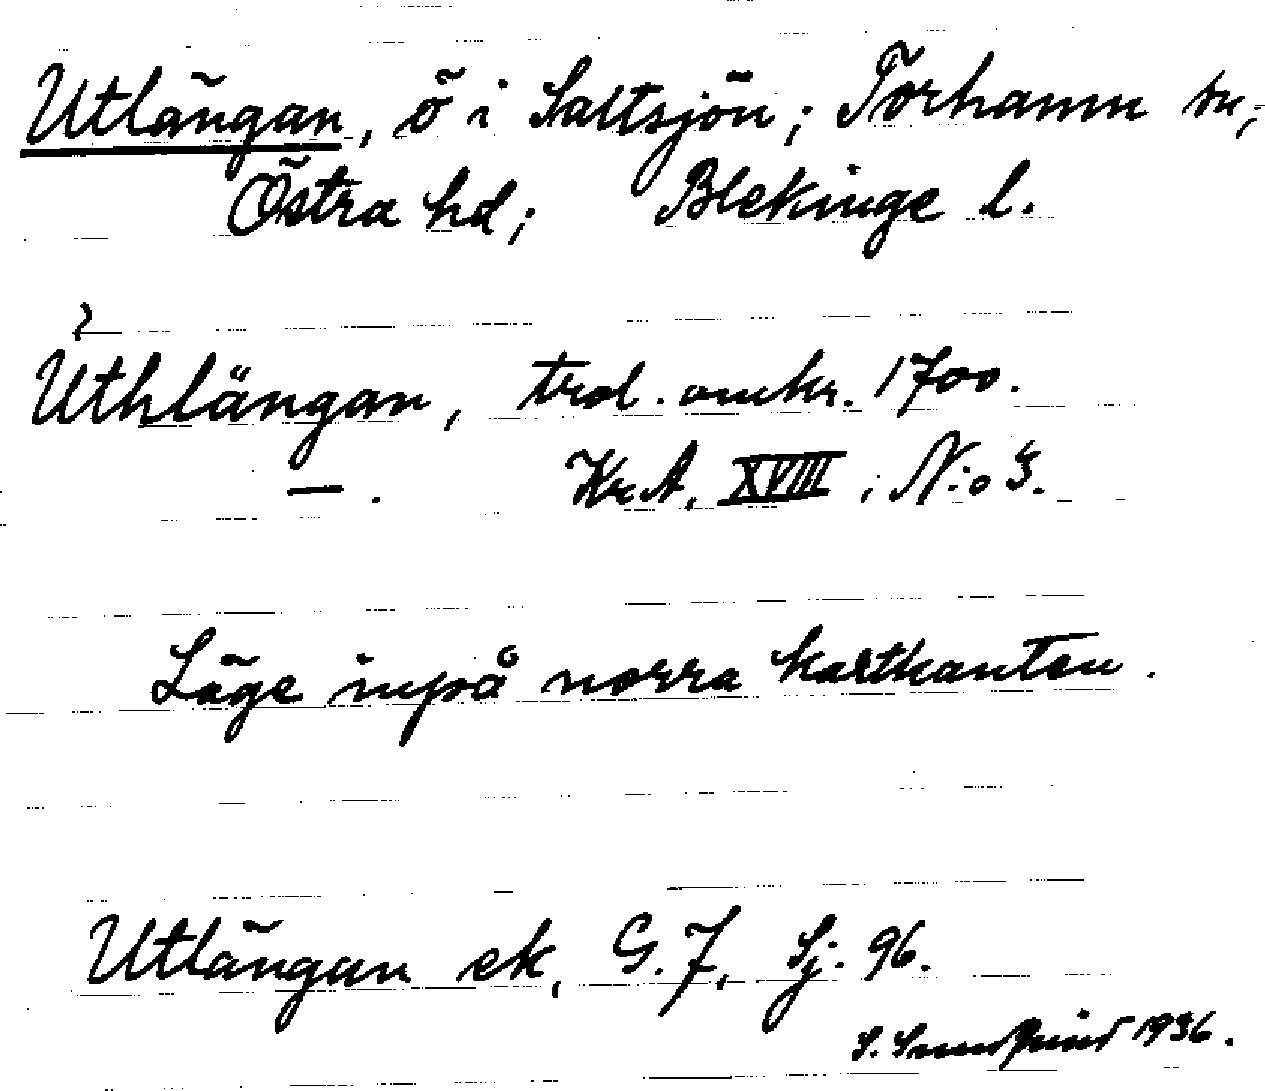 Utlängan, ö i Saltsjön; Torhamn sn;
Östra hd; Blekinge l.
?
Uthlängan, trol. omkr. 1700.
— . Kr.A. XVIII, N:o 3.
Läge inpå norra kartkanten.
Utlängan ek, G.J, Sj. 96.
S. 1936.